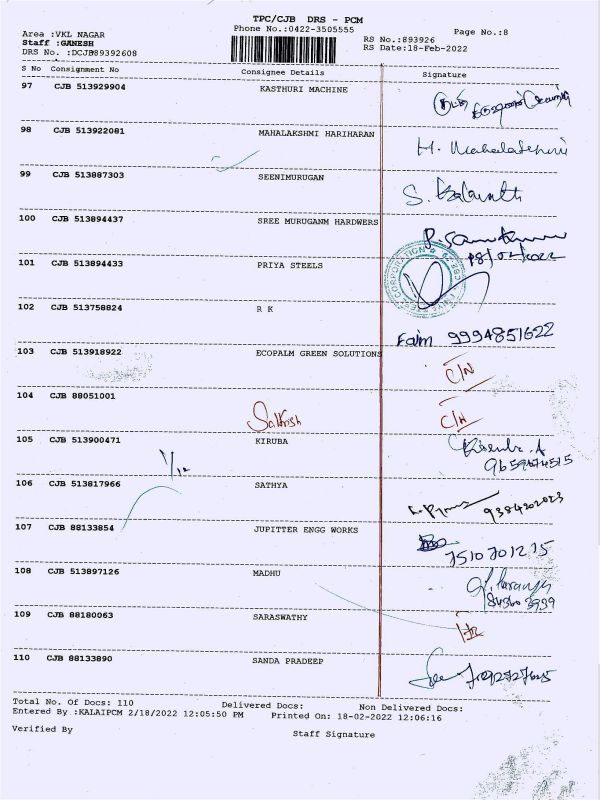 TPC/CJB DRS - PCM
Phone No.:0422-3505555
Page No.:8
Area :VKL NAGAR
RS No.:893926
Staff :GANESH
RS Date:18-Feb-2022
DRS No. :DCJB89392608
S No Consignment No Consignee Details Signature
97 CJB 513929904 KASTHURI MACHINE
98 CJB 513922081 MAHALAKSHMI HARIHARAN
H. Mahalakshmi
99 CJB 513887303 SEENIMURUGAN
100 CJB 513894437 SREE MURUGANM HARDWERS
18/02/2022
101 CJB 513894433 PRIYA STEELS
102 CJB 513758824 R K
Faim 9994851622
103 CJB 513918922 ECOPALM GREEN SOLUTIONS
C/N
104 CJB 88051001
Sathish
C/N
105 CJB 513900471 KIRUBA
106 CJB 513817966 SATHYA
107 CJB 88133854 JUPITTER ENGG WORKS
7510701215
108 CJB 513897126 MADHU
109 CJB 88180063 SARASWATHY
110 CJB 88133890 SANDA PRADEEP
Total No. Of Docs: 110 Delivered Docs: Non Delivered Docs:
Entered By :KALAIPCM 2/18/2022 12:05:50 PM Printed On: 18-02-2022 12:06:16
Verified By Staff Signature